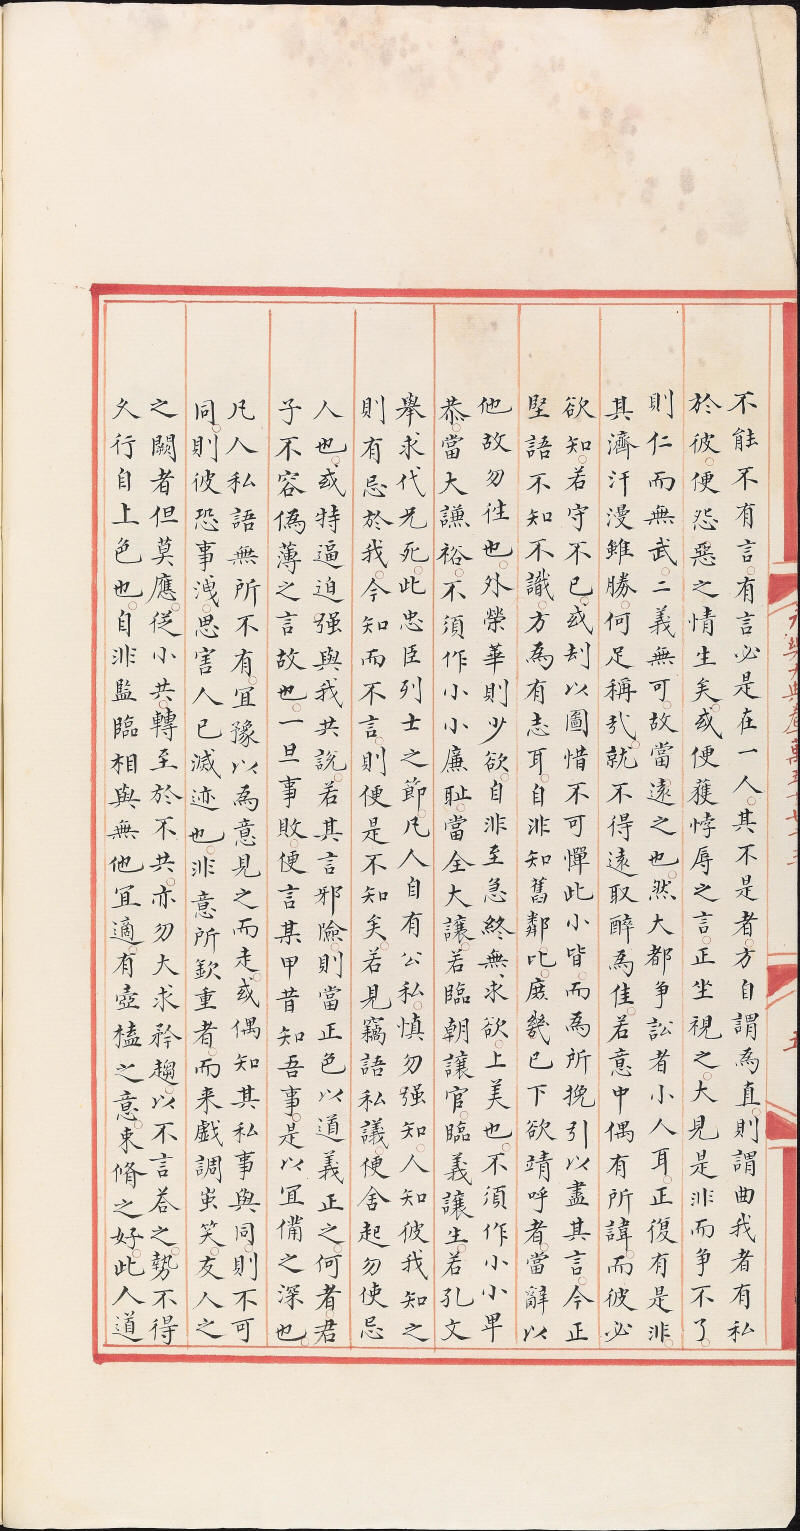 不能不有言。有言必是在一人。其不是者。方自謂為直。則謂曲我者有私
於彼。便怨惡之情生矣。或便獲悖辱之言。正坐視之。大見是非而爭不了。
則仁而無武。二義無可。故當遠之也。然大都爭訟者小人耳。正復有是非。
其濟汗漫雖勝。何足稱哉。就不得遠取醉為佳。若意中偶有所諱。而彼必
欲知。若守不已。或刦以圖惜不可憚此小皆。而為所挽引以盡其言。今正
堅語不知不識。方為有志耳。自非知舊鄰叱。庶幾已下欲靖呼者。當辭以
他故勿徃也。外榮華則少欲。自非至急終無求欲。上美也。不須作小小卑
恭。當大謙裕。不須作小小廉耻。當全大讓。若臨朝讓官。臨義讓生。若孔文
舉求代兄死。此忠臣列士之節。凡人自有公私。慎勿强知。人知彼我知之
則有忌於我。今知而不言。則便是不知矣。若見竊語私議。便舍起勿使忌
人也。或特逼迫强與我共說。若其言邪險。則當正色以道義正之。何者。君
子不容偽薄之言故也。一旦事敗。便言某甲昔知吾事。是以宜備之深也。
凡人私語無所不有。宜豫以為意見之而走。或偶知其私事與同。則不可
同。則彼恐事洩。思害人已滅迹也。非意所欽重者。而来戲調蚩笑。友人之
之闕者但莫應。從小共。轉至於不共。亦勿大求矜趨。以不言荅之。勢不得
久行自上色也。自非監臨相與無他宜適。有壺榼之意。束脩之好。此人道